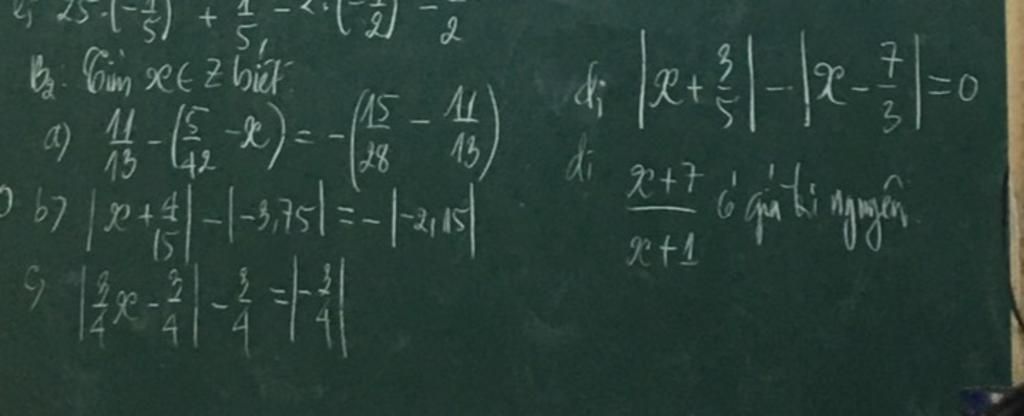 25·(-1/5) + 1/5 - 2·(-1/2) - 1/2
B₂: Tìm x ∈ Z biết:
a) 11/13 - (5/42 - x) = -(15/28 - 11/13)
b) |x + 4/15| - |-3,75| = -|-2,15|
c) |3/4 x - 3/4| - 3/4 = |-3/4|
d) |x + 3/5| - |x - 7/3| = 0
d) x+7/x+1 có giá trị nguyên